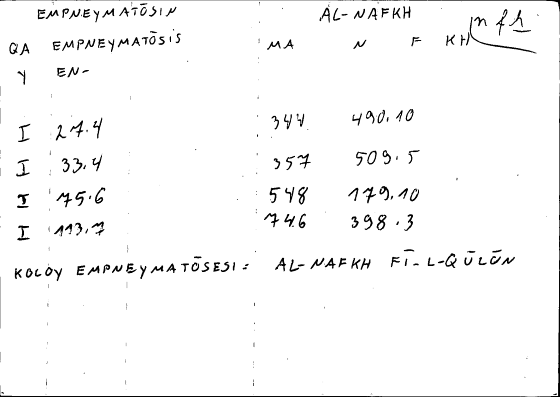 EMPNEYMATŌSIN AL-NAFKH
QA EMPNEYMATŌSIS MA N F KH nfh
Y EN-
I 27.4 344 490.10
I 33.4 357 509.5
I 75.6 548 179.10
I 113.7 746 398.3
KOLOY EMPNEYMATŌSESI: AL-NAFKH FĪ-L-QŪLŪN